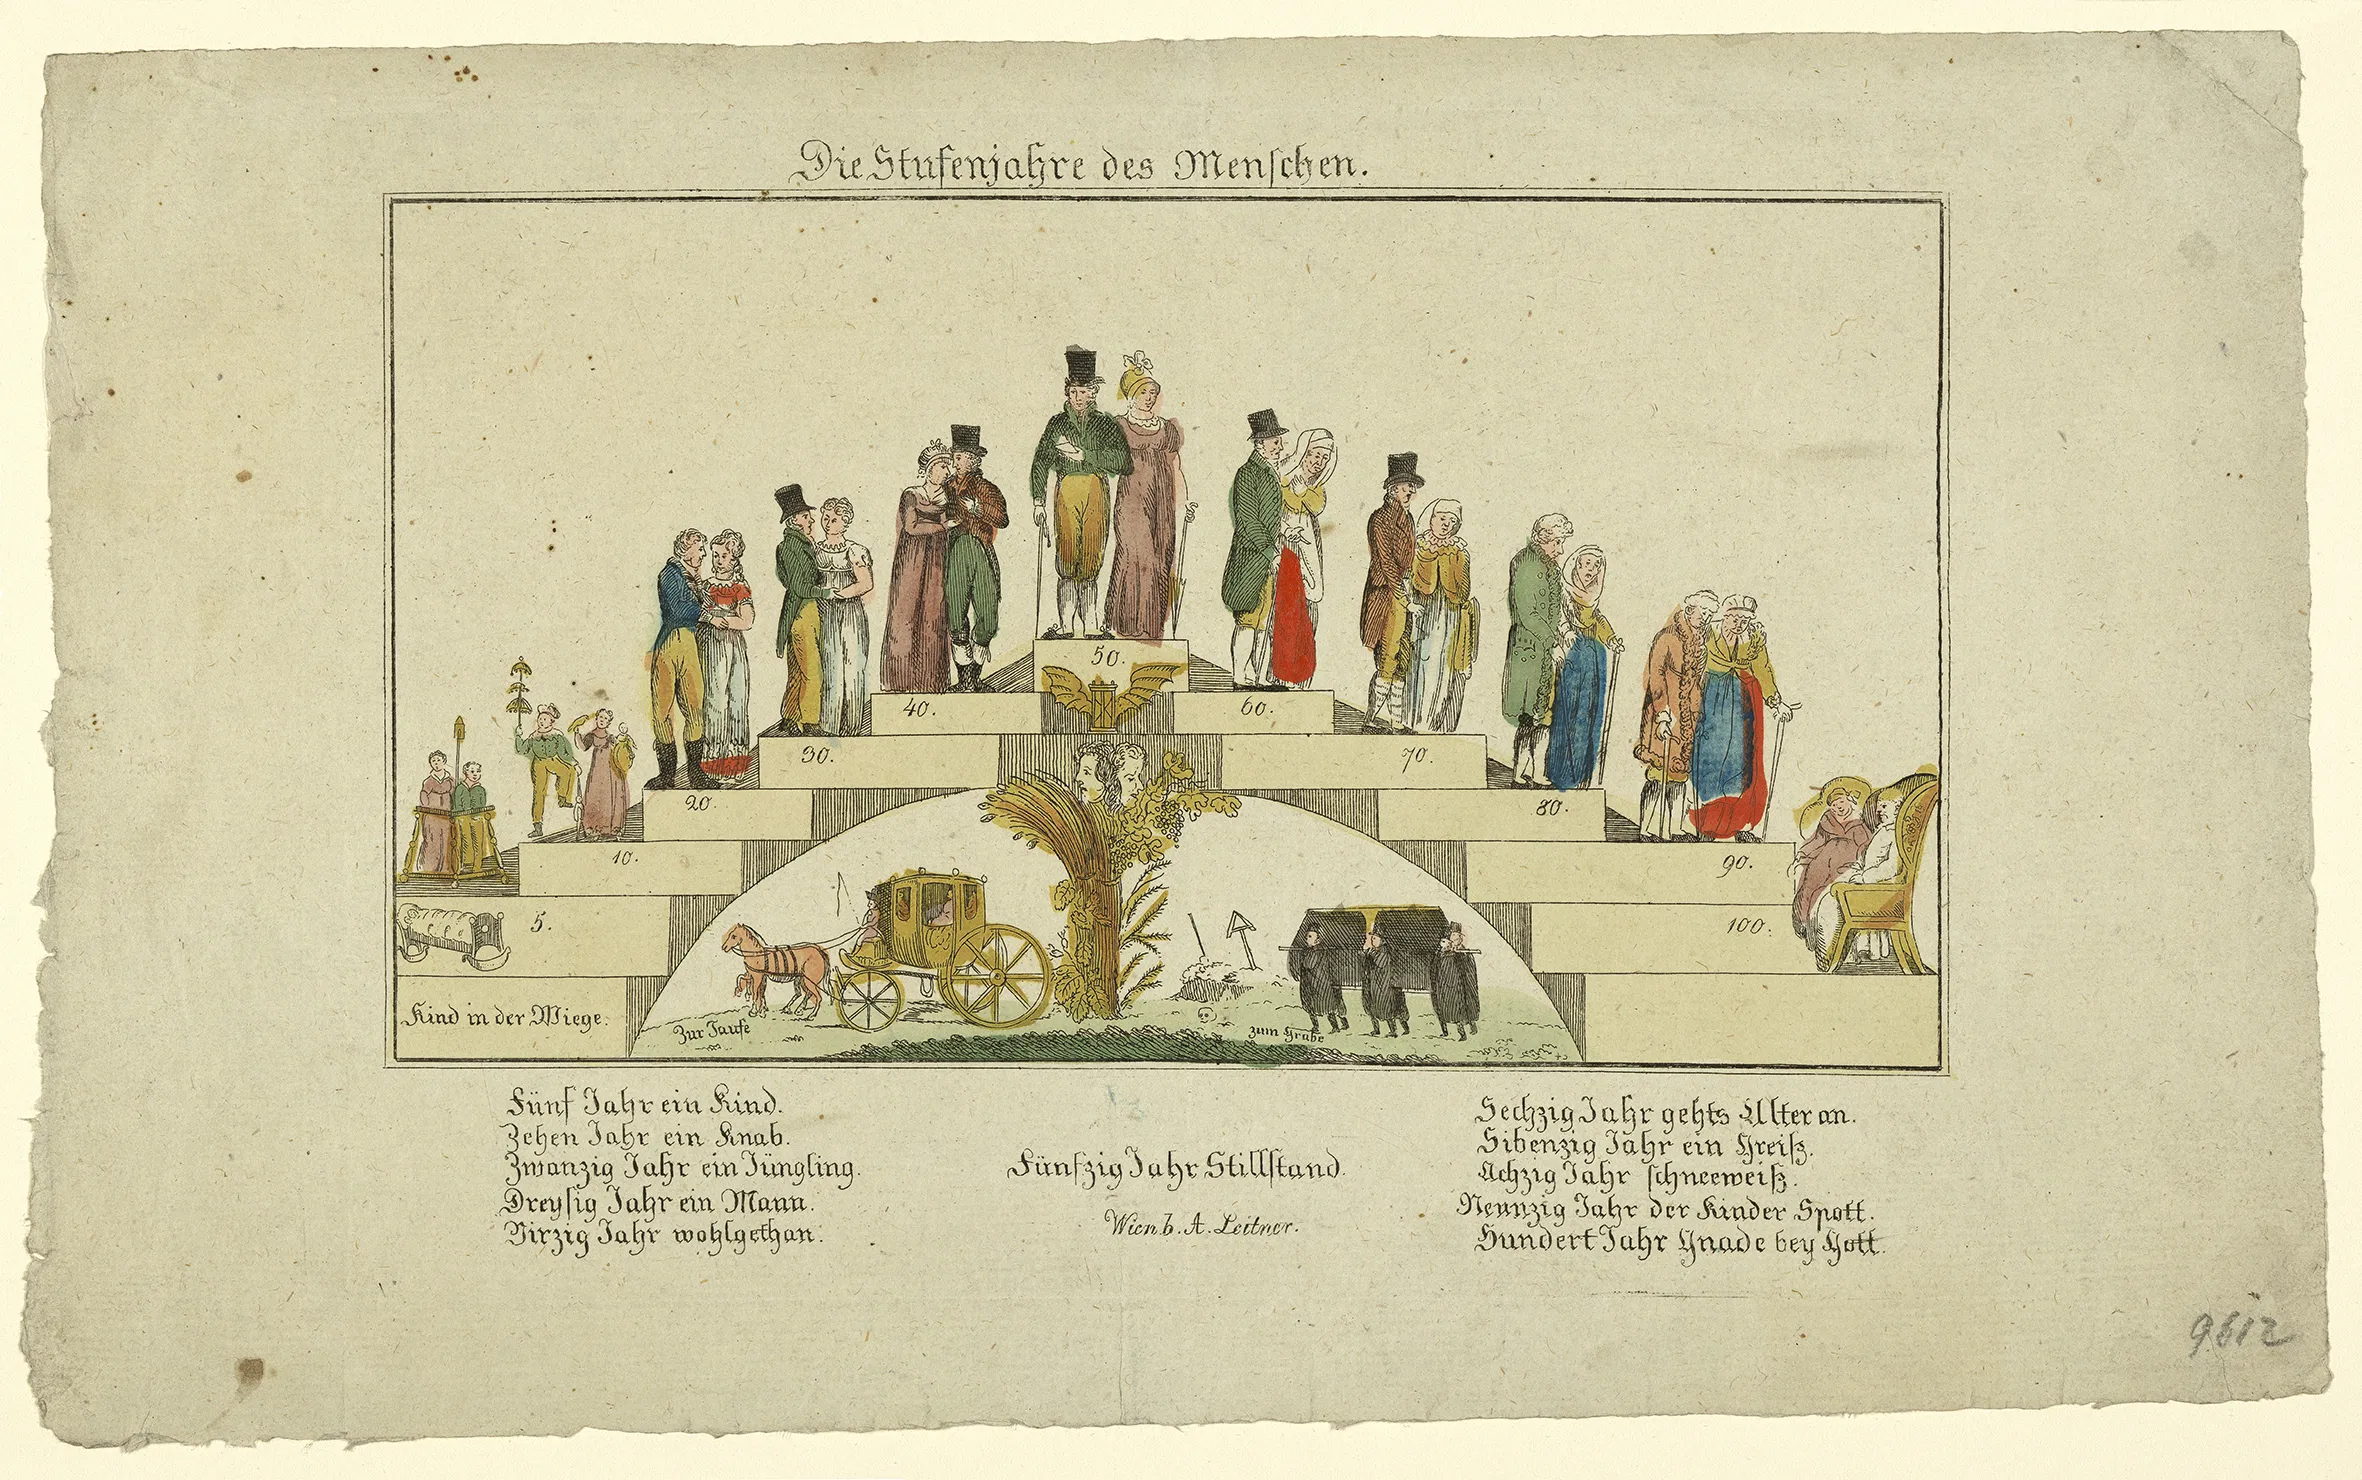 Die Stufenjahre des Menschen.
50.
40.
60.
30.
70.
20.
80.
10.
90.
5.
100.
Kind in der Wiege.
Zur Taufe
zum Grabe
Fünf Jahr ein Kind.
Zehen Jahr ein Knab.
Zwanzig Jahr ein Jüngling.
Dreysig Jahr ein Mann.
Virzig Jahr wohlgethan.
Fünfzig Jahr Stillstand.
Wien b. A. Leitner.
Sechzig Jahr gehts Alter an.
Sibenzig Jahr ein Greiß.
Achzig Jahr schneeweiß.
Neunzig Jahr der Kinder Spott.
Hundert Jahr Gnade bey Gott.
9612